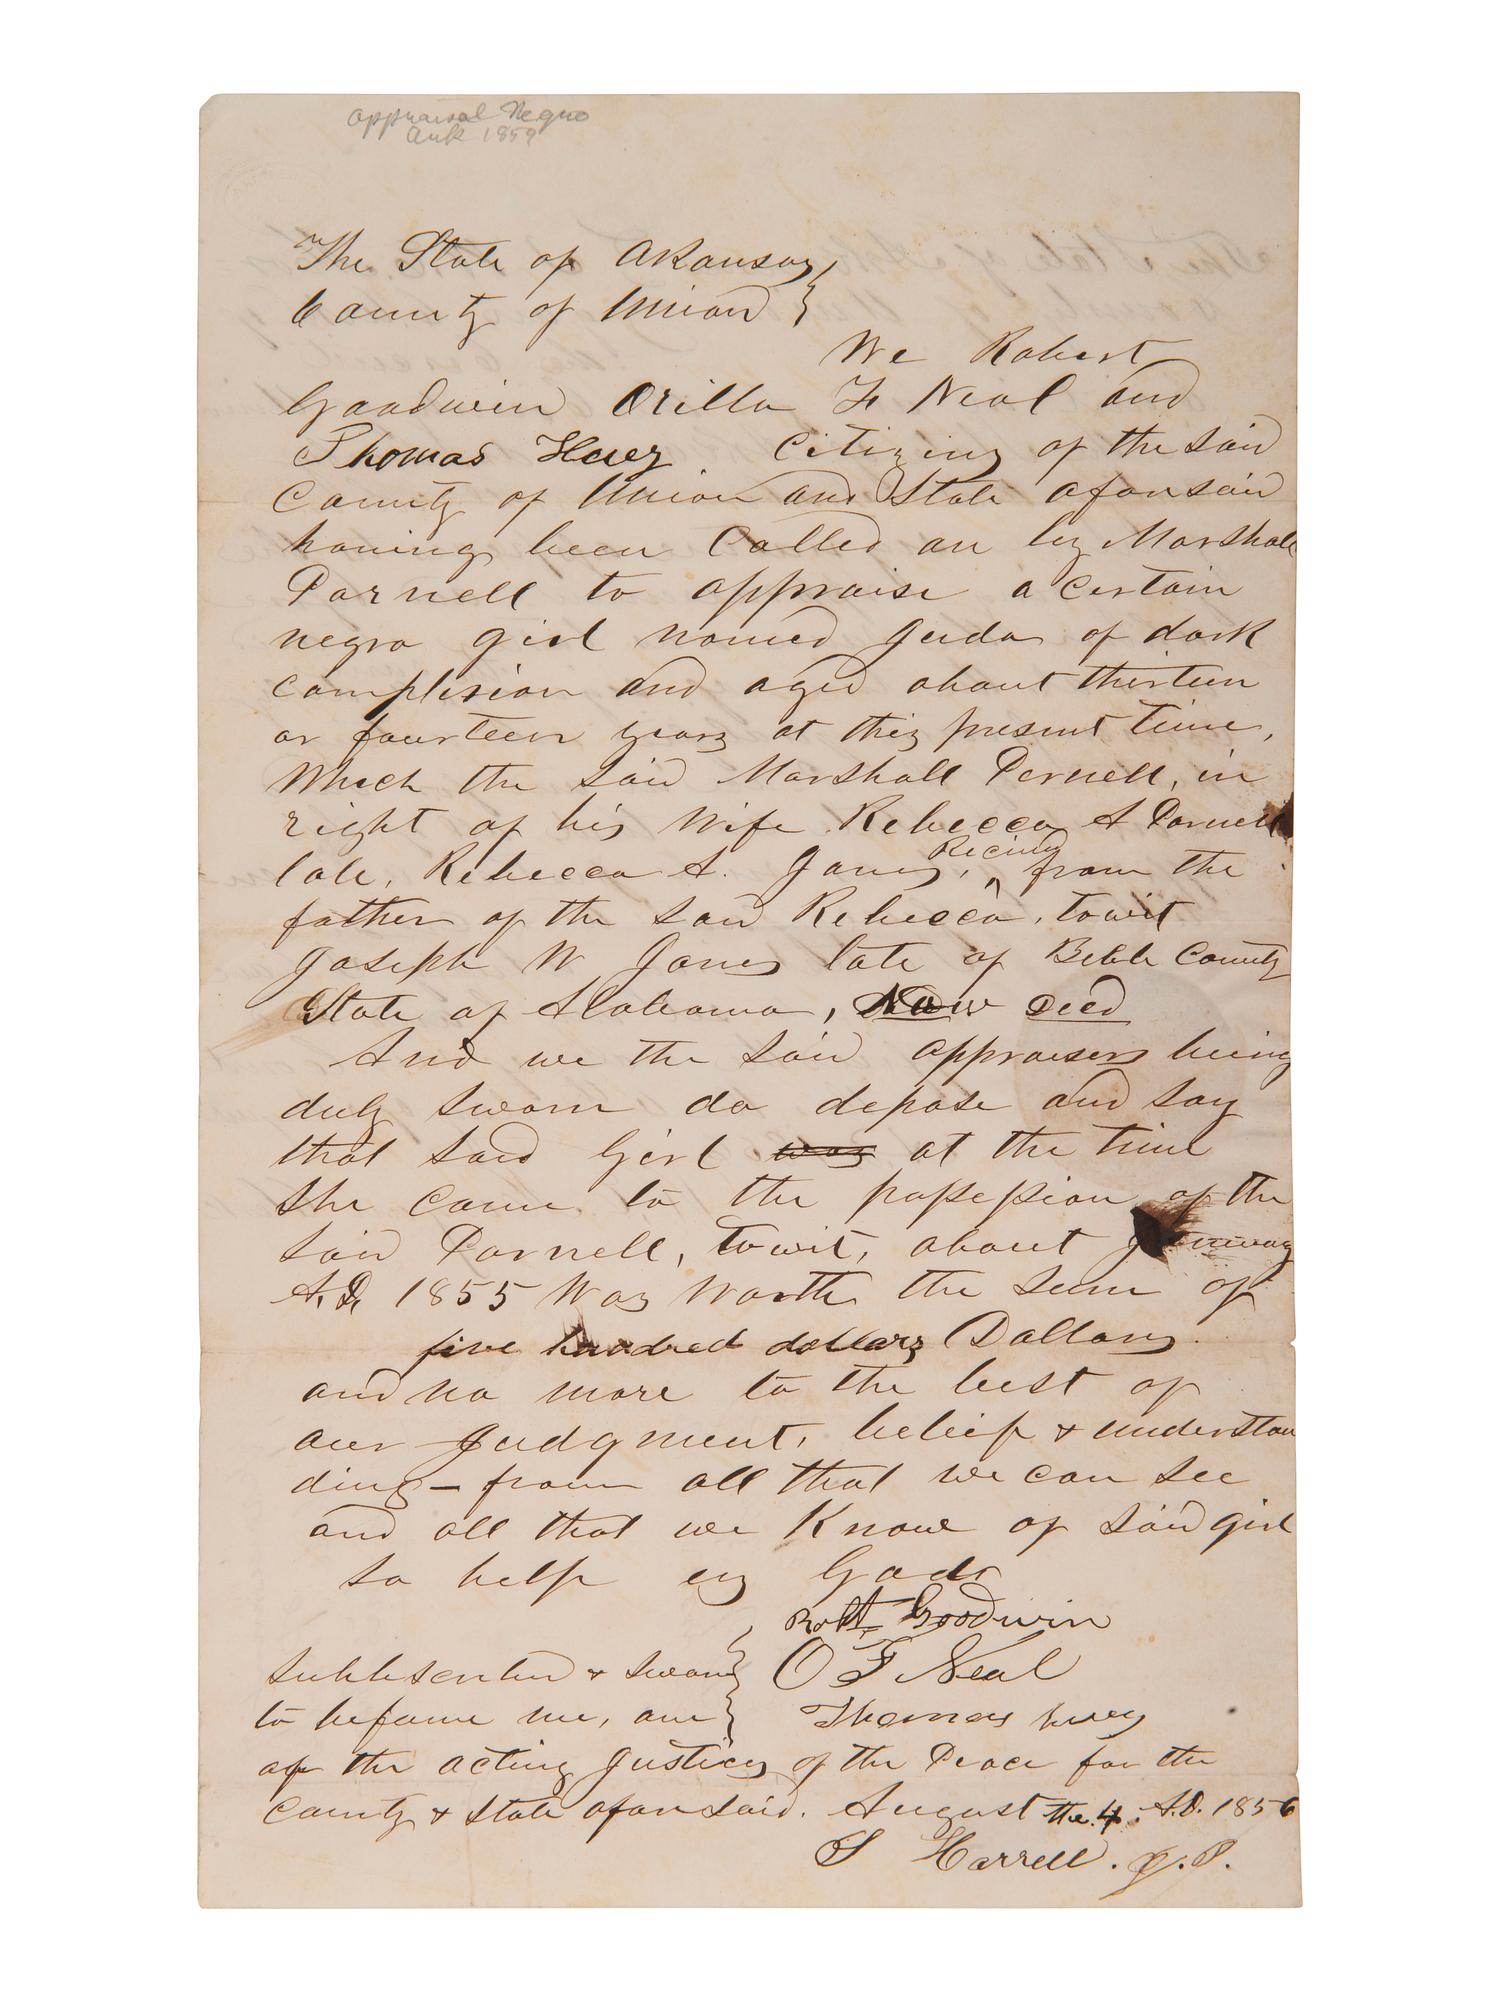 appraisal Negro
Ark 1859
The State of Arkansas
County of Union
We Robert
Goodwin Orilla F Neal and
Thomas Huey Citizens of the said
County of Union and State aforesaid
having been Called on by Marshall
Parnell to appraise a certain
negro girl named Juda of dark
complexion and aged about thirteen
or fourteen years at this present time,
Which the said Marshall Pernell, in
right of his Wife Rebecca A Parnell
late, Rebecca A. Jones, Recived from the
father of the said Rebecca, towit
Joseph W Jones late of Bibb County
State of Alabama, Now Deed
And we the said appraisers being
duly sworn do depose and say
that said Girl was at the time
she came to the possession of the
said Parnell, towit, about January
A.D. 1855 Was Worth the sum of
five hundred dollars Dollars.
and no more to the best of
our Judgment, beleif & understan
ding - from all that we can see
and all that we Know of said girl
so help us God
Robt. Goodwin
Subbscribed & sworn O F Neal
to before me, one Thomas Huey
of the acting Justices of the Peace for the
County & State aforesaid. August the 4. A.D. 1856
S Harrell. J.P.